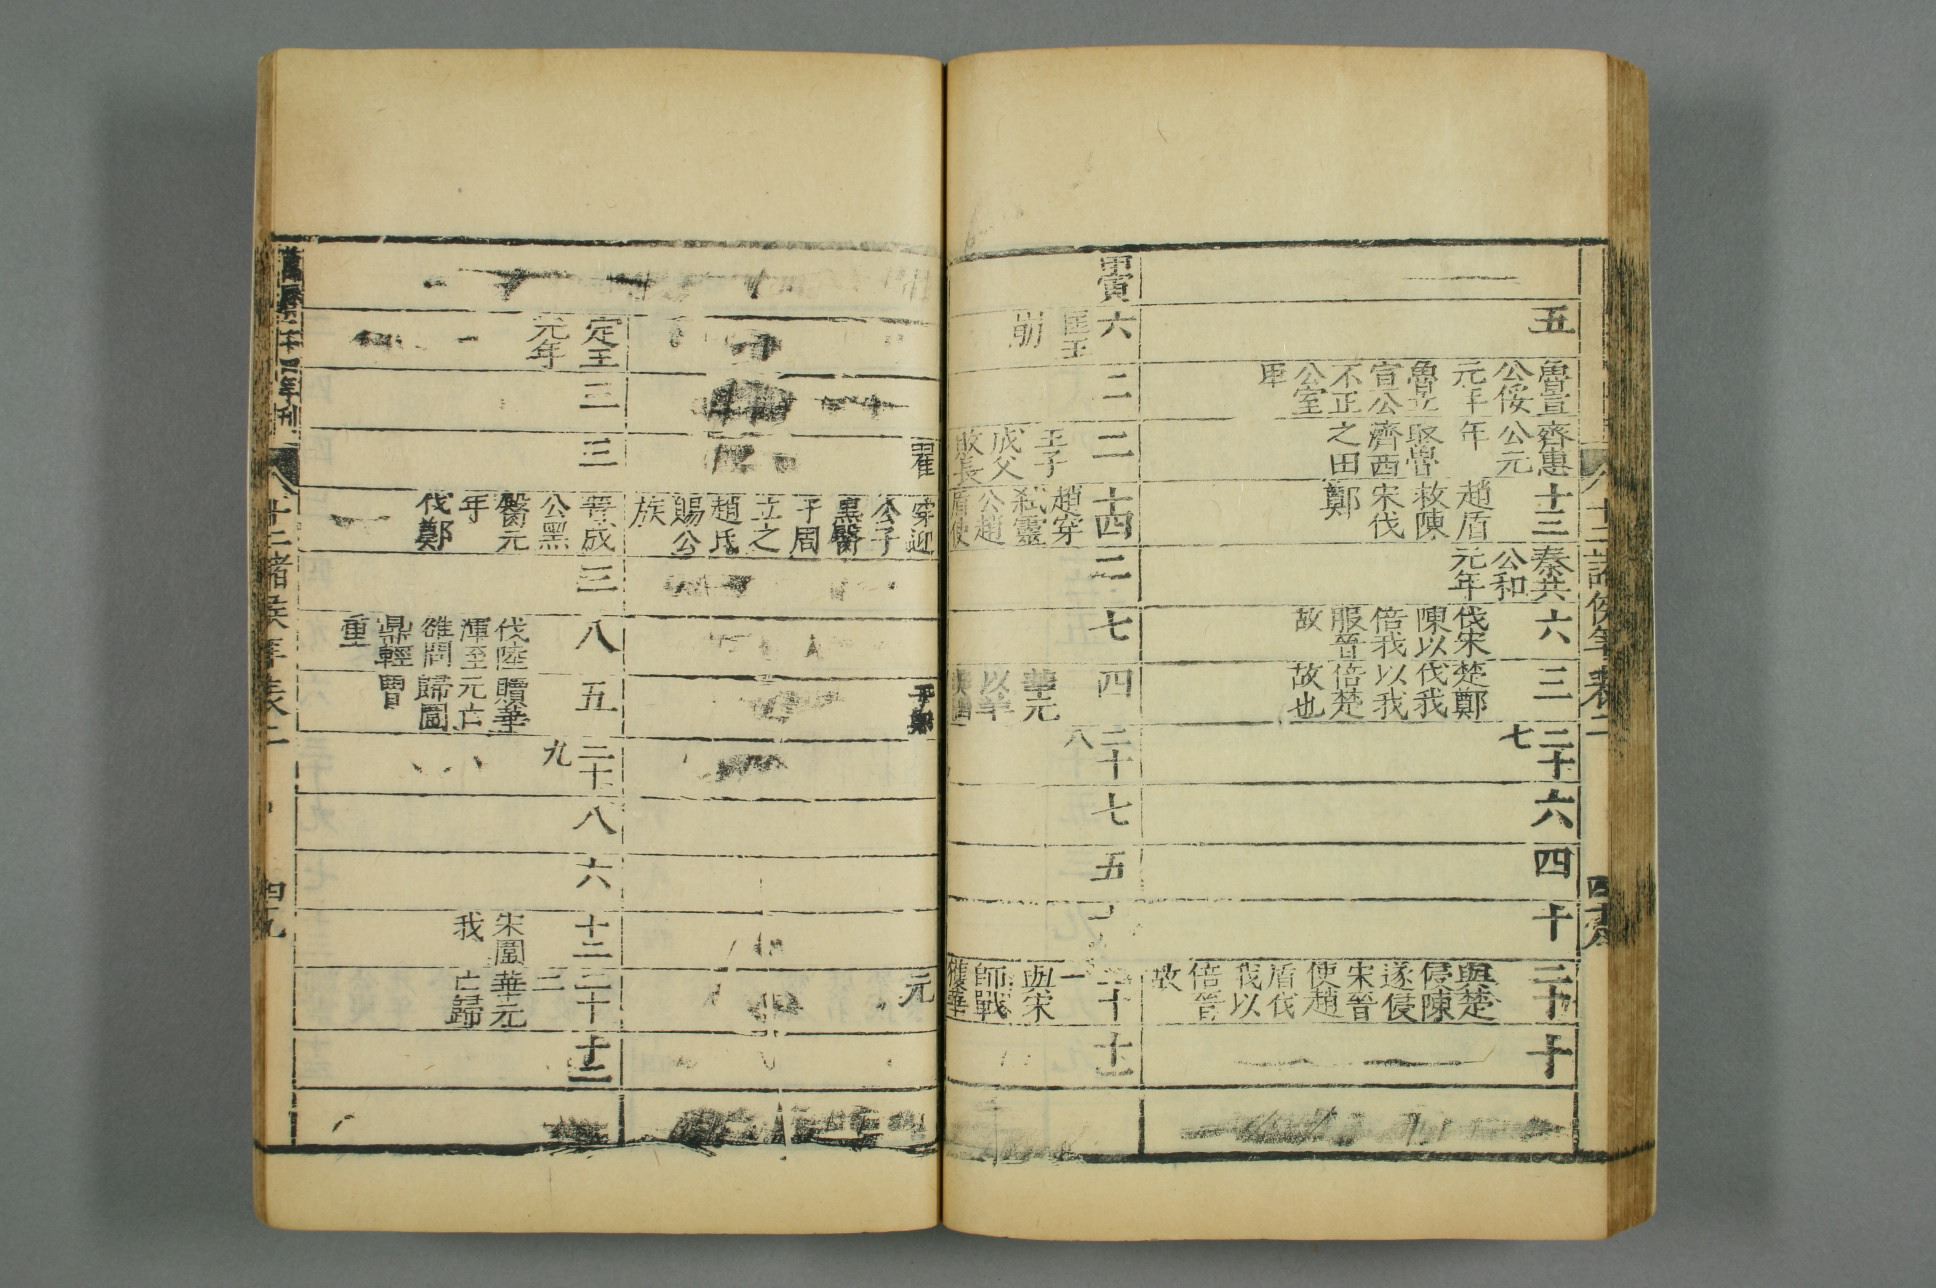 五
魯宣
公俀
元年
魯立
宣公
不正
公室
卑
齊惠
公元
年
取魯
濟西
之田
十三
趙盾
救陳
宋伐
鄭
秦共
公和
元年
六
伐宋
陳以
倍我
服晉
故
三
楚鄭
伐我
以我
倍楚
故也
二十
七
六
四
十
二十
與楚
侵陳
遂侵
宋晉
使趙
盾伐
我以
倍晉
故
十
甲寅
六
匡王
崩
二
二
王子
成父
敗長
十四
趙穿
殺靈
公趙
盾使
二
七
四
華元
以羊
二十
八
七
五
二十
一
與宋
師戰
獲華
十一
翟
穿迎
公子
黑臀
于周
立之
趙氏
賜公
族
于鄭
元
定王
元年
三
三
晉成
公黑
臀元
年
伐鄭
三
八
伐陸
渾至
雒問
鼎輕
重
五
贖華
元亡
歸圍
曹
二十
九
八
六
十二
宋圍
我
二十
二
華元
亡歸
十二
萬曆二十四年刊
十二諸侯年表二
四九